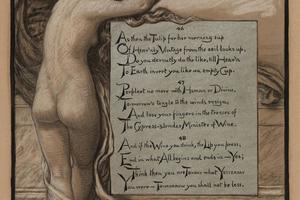 46
As then the Tulip for her morning sup
Of Heav'nly Vintage from the soil looks up,
Do you devoutly do the like, till Heav'n
To Earth invert you like an empty Cup.
47
Perplext no more with Human or Divine,
Tomorrow's tangle to the winds resign,
And lose your fingers in the tresses of
The Cypress-slender Minister of Wine.
48
And if the Wine you drink, the Lip you press,
End in what All begins and ends in Yes;
Think then you are Today what Yesterday
You were Tomorrow you shall not be less.